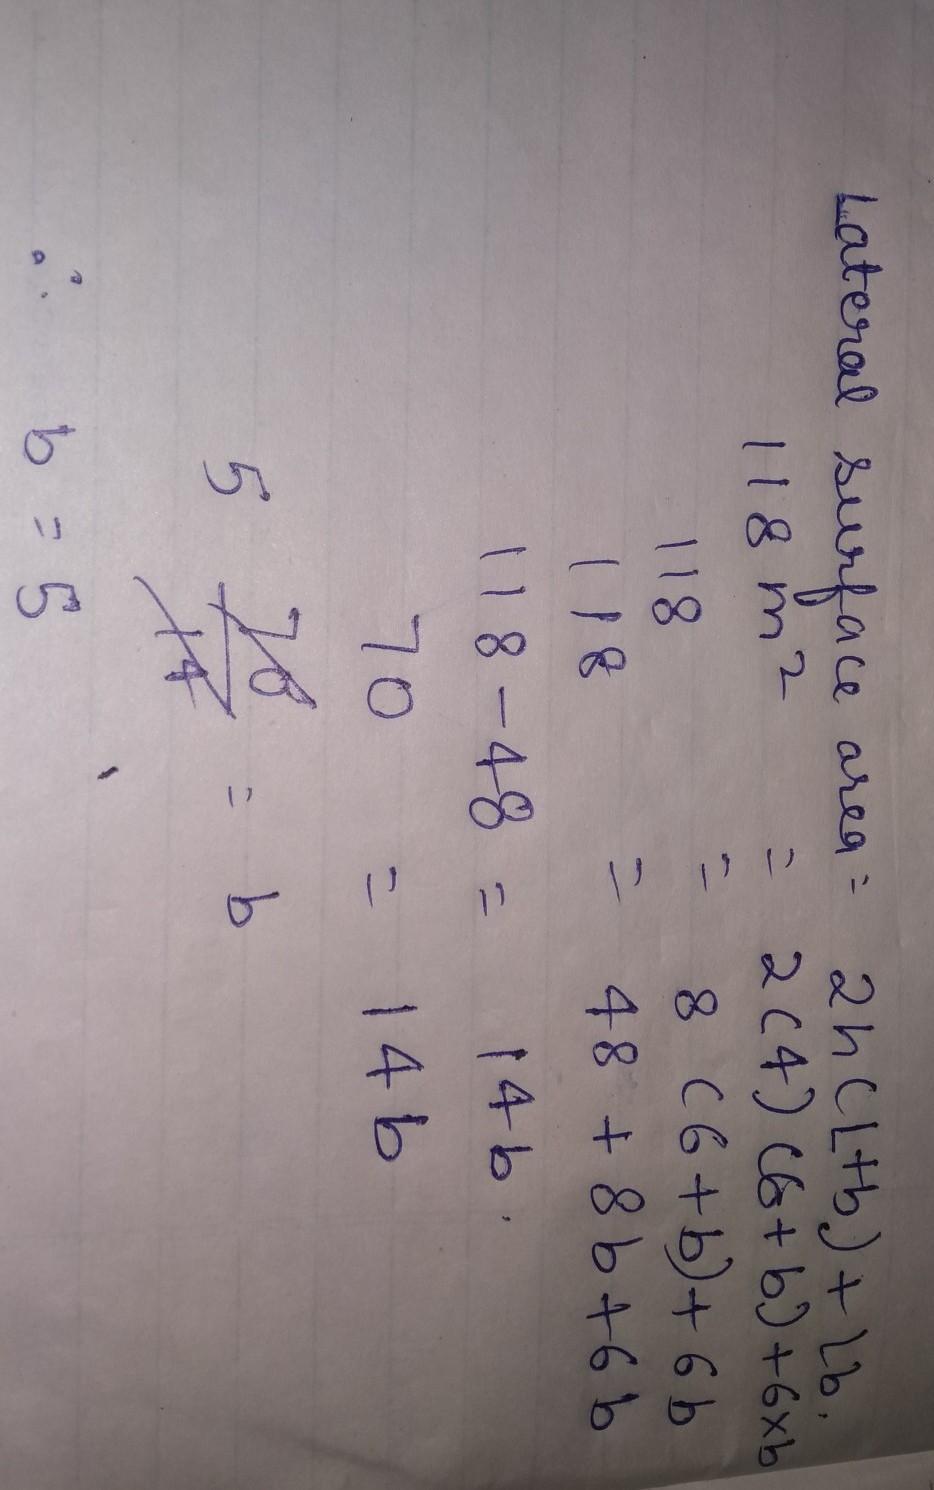 Lateral surface area = 2h(l+b) + lb.
118 m² = 2(4) (6+b) + 6×b
118 = 8 (6+b) + 6b
118 = 48 + 8b + 6b
118 - 48 = 14b.
70 = 14b
5 70/14 = b
∴ b = 5